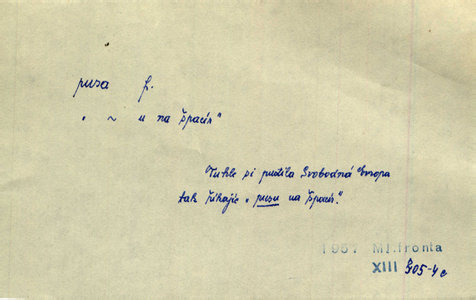 pusa f.
„ ~ u na špacír“
Tuhle si pustila Svobodná Evropa
tak říkajíc „pusu na špacír“.
1957 Ml.fronta
XIII 305-4c